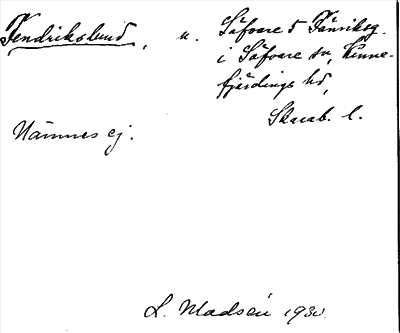 Fendrikslund, u. Säfvare 5 Fänriksg.
i Säfvare sn, Kinne-
fjärdings hd,
Skarab. l.
Nämnes ej.
L. Madsén 1930